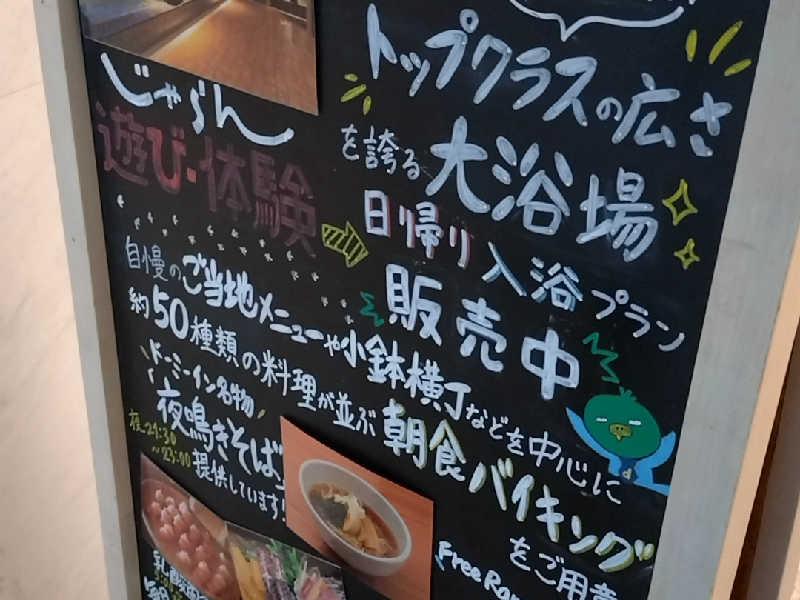 トップクラスの広さ
を誇る大浴場
じゃらん
遊び・体験
日帰り入浴プラン
販売中
自慢のご当地メニューや小鉢横丁などを中心に
約50種類の料理が並ぶ朝食バイキング
をご用意
ドーミーイン名物
夜鳴きそば
夜21:30
～23:00
提供しています!
Free